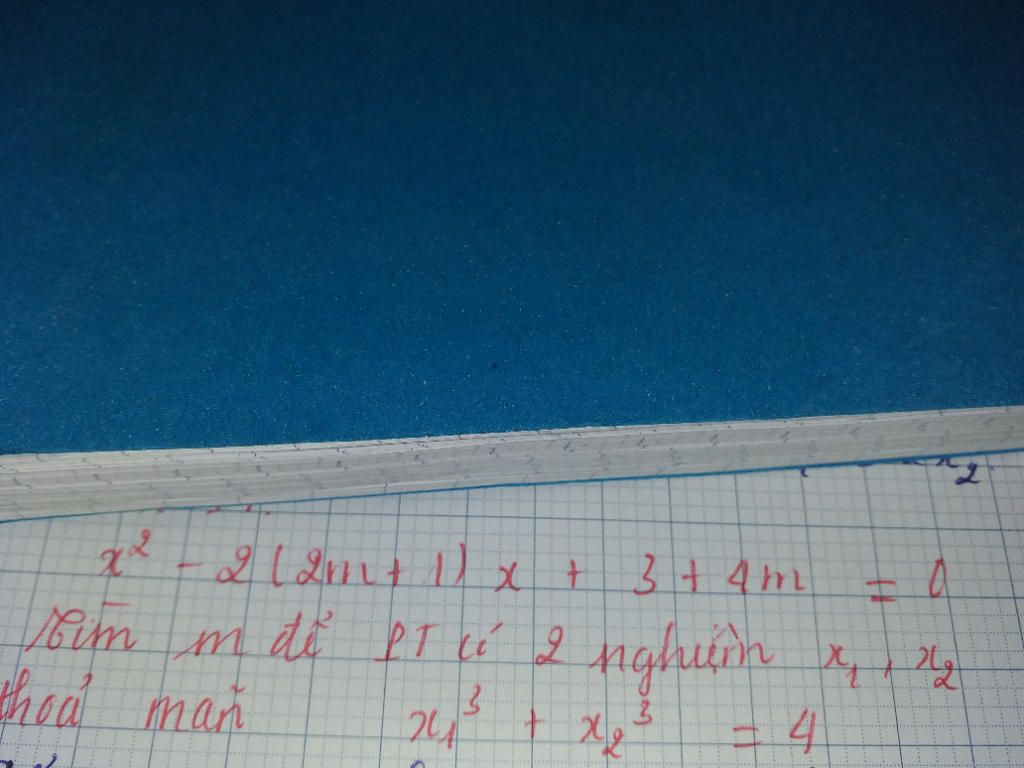 x₂
x² - 2(2m + 1) x + 3 + 4m = 0
Tìm m để PT có 2 nghiệm x₁, x₂
thoả mãn x₁³ + x₂³ = 4